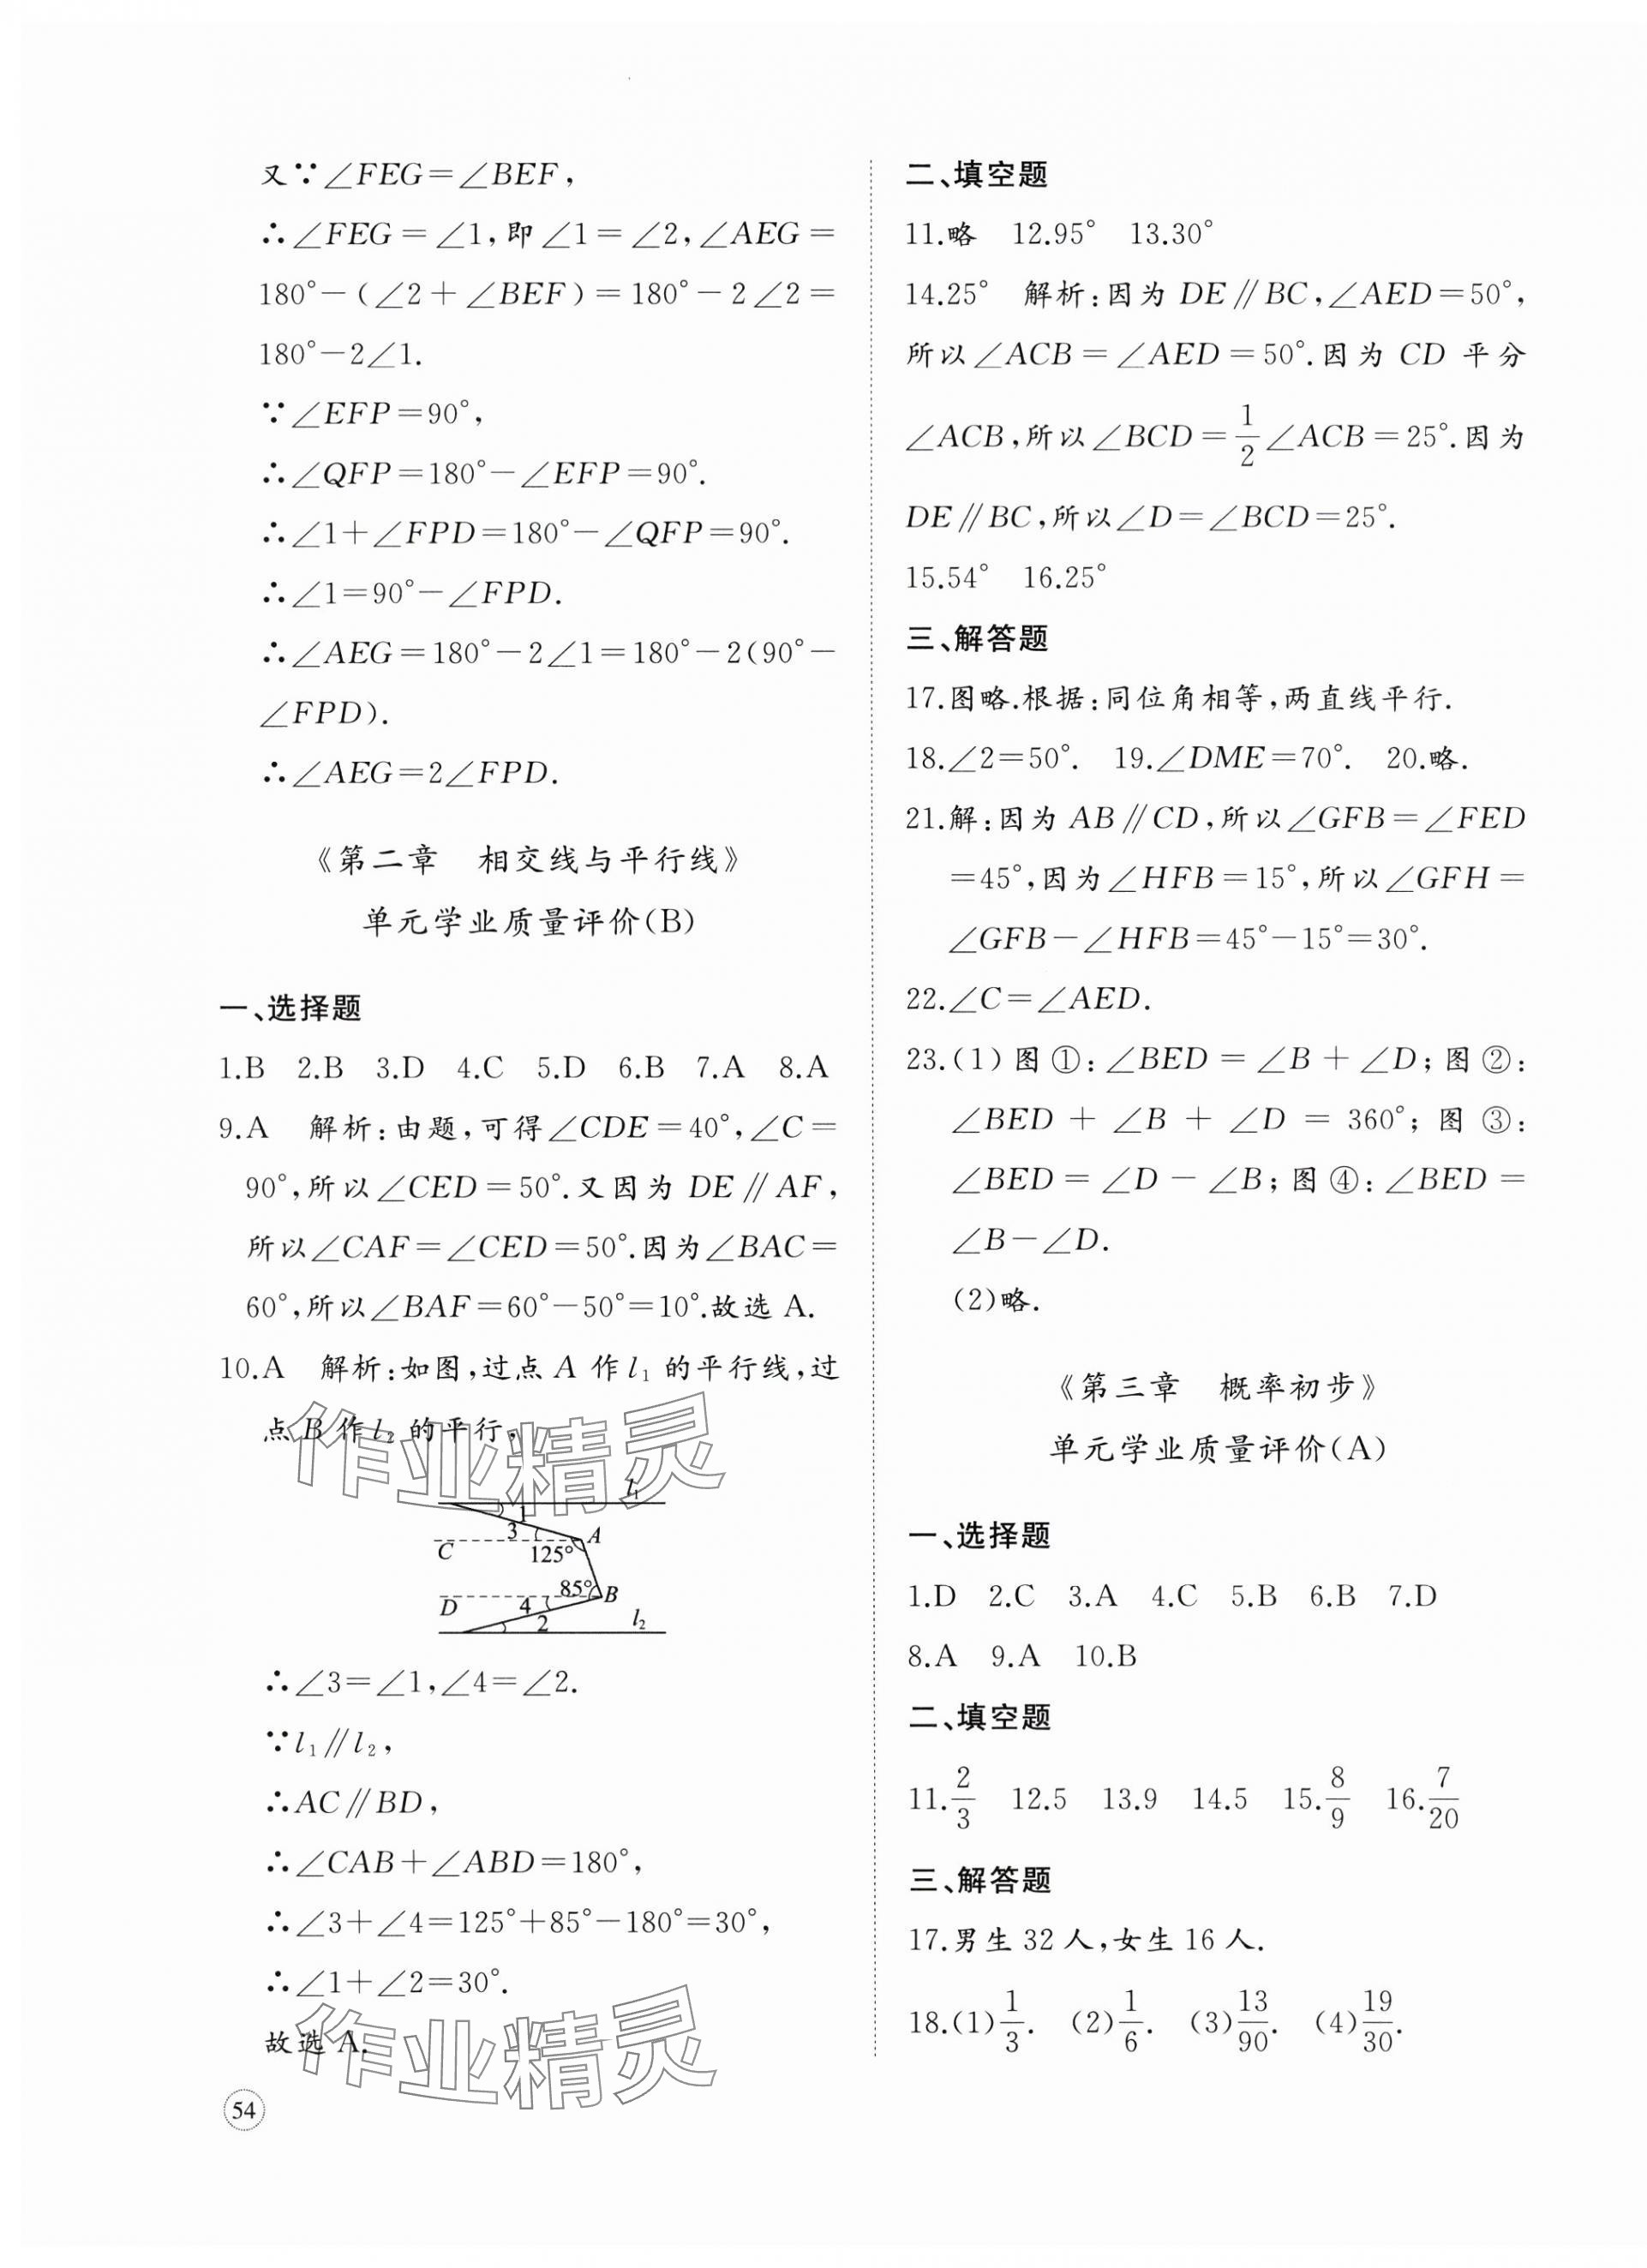 又∵∠FEG=∠BEF,
∴∠FEG=∠1,即∠1=∠2,∠AEG=
180°-(∠2+∠BEF)=180°-2∠2=
180°-2∠1.
∵∠EFP=90°,
∴∠QFP=180°-∠EFP=90°.
∴∠1+∠FPD=180°-∠QFP=90°.
∴∠1=90°-∠FPD.
∴∠AEG=180°-2∠1=180°-2(90°-
∠FPD).
∴∠AEG=2∠FPD.
《第二章 相交线与平行线》
单元学业质量评价(B)
一、选择题
1.B 2.B 3.D 4.C 5.D 6.B 7.A 8.A
9.A 解析:由题,可得∠CDE=40°,∠C=
90°,所以∠CED=50°.又因为 DE∥AF,
所以∠CAF=∠CED=50°.因为∠BAC=
60°,所以∠BAF=60°-50°=10°.故选 A.
10.A 解析:如图,过点 A 作 l₁ 的平行线,过
点 B 作 l₂ 的平行,
l₁
1
3
A
C
125°
85°
B
D
4
2
l₂
∴∠3=∠1,∠4=∠2.
∵l₁∥l₂,
∴AC∥BD,
∴∠CAB+∠ABD=180°,
∴∠3+∠4=125°+85°-180°=30°,
∴∠1+∠2=30°.
故选 A.
作业精灵
作业精灵
54
二、填空题
11.略 12.95° 13.30°
14.25° 解析:因为 DE∥BC,∠AED=50°,
所以∠ACB=∠AED=50°.因为 CD 平分
∠ACB,所以∠BCD=1/2∠ACB=25°.因为
DE∥BC,所以∠D=∠BCD=25°.
15.54° 16.25°
三、解答题
17.图略.根据:同位角相等,两直线平行.
18.∠2=50°. 19.∠DME=70°. 20.略.
21.解:因为 AB∥CD,所以∠GFB=∠FED
=45°,因为∠HFB=15°,所以∠GFH=
∠GFB-∠HFB=45°-15°=30°.
22.∠C=∠AED.
23.(1)图①:∠BED=∠B+∠D;图②:
∠BED+∠B+∠D=360°;图③:
∠BED=∠D-∠B;图④:∠BED=
∠B-∠D.
(2)略.
《第三章 概率初步》
单元学业质量评价(A)
一、选择题
1.D 2.C 3.A 4.C 5.B 6.B 7.D
8.A 9.A 10.B
二、填空题
11.2/3 12.5 13.9 14.5 15.8/9 16.7/20
三、解答题
17.男生 32 人,女生 16 人.
18.(1)1/3. (2)1/6. (3)13/90. (4)19/30.